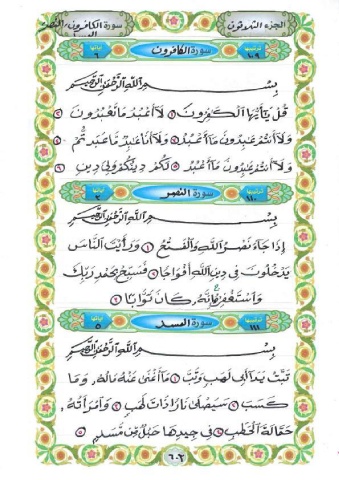 الجزء الثلاثون
سورة الكافرون، النصر
المسد
ترتيبها ١٠٩ سورة الكافرون آياتها ٦
بِسْمِ اللَّهِ الرَّحْمَٰنِ الرَّحِيمِ
قُلْ يَٰٓأَيُّهَا ٱلْكَٰفِرُونَ ١ لَآ أَعْبُدُ مَا تَعْبُدُونَ ٢
وَلَآ أَنتُمْ عَٰبِدُونَ مَآ أَعْبُدُ ٣ وَلَآ أَنَا۠ عَابِدٌ مَّا عَبَدتُّمْ ٤
وَلَآ أَنتُمْ عَٰبِدُونَ مَآ أَعْبُدُ ٥ لَكُمْ دِينُكُمْ وَلِىَ دِينِ ٦
ترتيبها ١١٠ سورة النصر آياتها ٣
بِسْمِ اللَّهِ الرَّحْمَٰنِ الرَّحِيمِ
إِذَا جَآءَ نَصْرُ ٱللَّهِ وَٱلْفَتْحُ ١ وَرَأَيْتَ ٱلنَّاسَ
يَدْخُلُونَ فِى دِينِ ٱللَّهِ أَفْوَاجًا ٢ فَسَبِّحْ بِحَمْدِ رَبِّكَ
وَٱسْتَغْفِرْهُ إِنَّهُۥ كَانَ تَوَّابًۢا ٣
ترتيبها ١١١ سورة المسد آياتها ٥
بِسْمِ اللَّهِ الرَّحْمَٰنِ الرَّحِيمِ
تَبَّتْ يَدَآ أَبِى لَهَبٍ وَتَبَّ ١ مَآ أَغْنَىٰ عَنْهُ مَالُهُۥ وَمَا
كَسَبَ ٢ سَيَصْلَىٰ نَارًا ذَاتَ لَهَبٍ ٣ وَٱمْرَأَتُهُۥ
حَمَّالَةَ ٱلْحَطَبِ ٤ فِى جِيدِهَا حَبْلٌ مِّن مَّسَدٍۭ ٥
٦٠٣